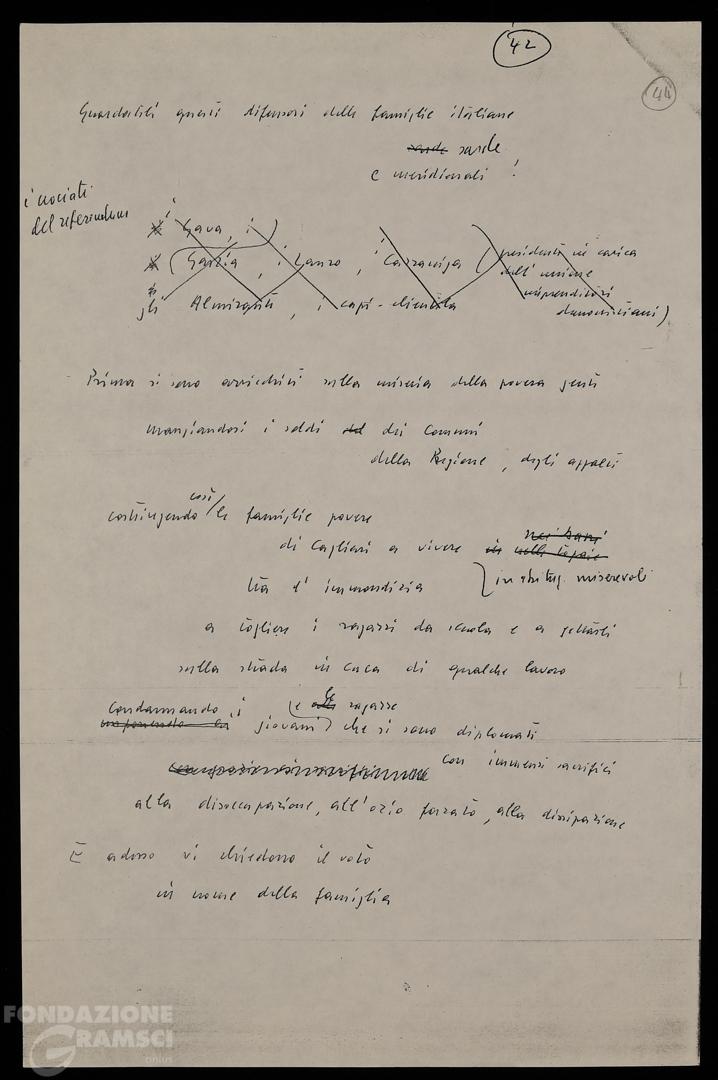 42
44
Guardateli questi difensori delle famiglie italiane
sarde sarde
e meridionali !
i crociati
del referendum
i Gava, i
(Garzia, i Lauro, i (presidente in carica
dell'unione
imprenditori
democristiani)
gli Almirante, i capi-clientela
Prima si sono arricchiti sulla miseria della povera gente
mangiandosi i soldi del dei Comuni
della Regione, degli appalti
costringendo così le famiglie povere
di Cagliari a vivere in nelle topaie
in abitaz. miserevoli
tra l'immondizia
a togliere i ragazzi da scuola e a gettarli
sulla strada in cerca di qualche lavoro
Condannando i (e le ragazze
imponendo ai giovani) che si sono diplomati
con immensi sacrifici
alla disoccupazione, all'ozio forzato, alla dissipazione
E adesso vi chiedono il voto
in nome della famiglia
FONDAZIONE
GRAMSCI
onlus